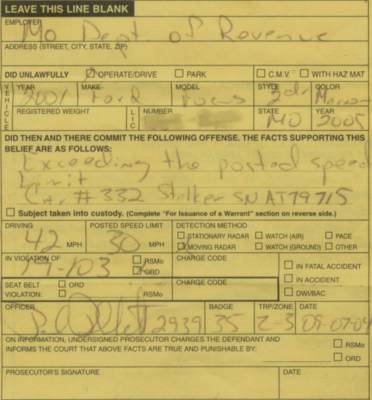 LEAVE THIS LINE BLANK
EMPLOYER
Mo Dept of Revenue
ADDRESS (STREET, CITY, STATE, ZIP)
DID UNLAWFULLY OPERATE/DRIVE PARK C.M.V. WITH HAZ MAT
VEHICLE YEAR MAKE MODEL STYLE COLOR
2001 Ford Focus 3dr Maroon
REGISTERED WEIGHT LIC NUMBER STATE YEAR
MO 2005
DID THEN AND THERE COMMIT THE FOLLOWING OFFENSE. THE FACTS SUPPORTING THIS
BELIEF ARE AS FOLLOWS:
Exceeding the posted speed
limit
Car #332 Stalker SN AT79715
Subject taken into custody. (Complete "For Issuance of a Warrant" section on reverse side.)
DRIVING POSTED SPEED LIMIT DETECTION METHOD
42 MPH 30 MPH STATIONARY RADAR WATCH (AIR) PACE
MOVING RADAR WATCH (GROUND) OTHER
IN VIOLATION OF RSMo CHARGE CODE
19-103 ORD IN FATAL ACCIDENT
SEAT BELT ORD CHARGE CODE IN ACCIDENT
VIOLATION: RSMo DWI/BAC
OFFICER BADGE TRP/ZONE DATE
2939 35 Z-3 09-07-04
ON INFORMATION, UNDERSIGNED PROSECUTOR CHARGES THE DEFENDANT AND
INFORMS THE COURT THAT ABOVE FACTS ARE TRUE AND PUNISHABLE BY: RSMo
ORD
PROSECUTOR'S SIGNATURE DATE